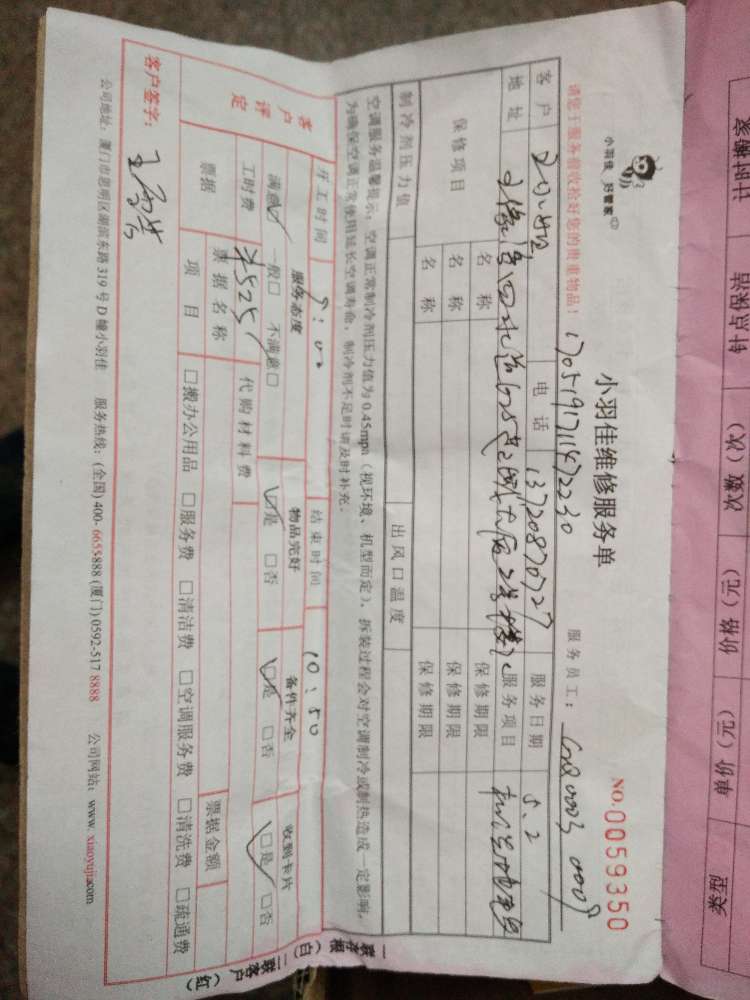 小羽佳 好管家
小羽佳维修服务单
NO.0059350
请您于服务前收拾好您的贵重物品！
1705191711472230
服务员工：
客户
电话
13720870727
服务日期
5.2
地址
服务项目
保修项目
名称
保修期限
名称
保修期限
名称
保修期限
制冷剂压力值
出风口温度
空调服务温馨提示：空调正常制冷剂压力值为 0.45mpa（视环境、机型而定），拆装过程会对空调制冷或制热造成一定影响，
为确保空调正常使用延长空调寿命，制冷剂不足时请及时补充。
开工时间
9:00
结束时间
10:50
客户评定
服务态度
物品完好
备件齐全
收到卡片
满意☑ 一般□ 不满意□
☑是 □否
☑是 □否
☑是 □否
工时费
¥525
代购材料费
票据
票据名称
票据金额
项目
□搬办公用品 □服务费 □清洁费 □空调服务费 □清洗费 □疏通费
客户签字：
公司地址：厦门市思明区湖滨东路 319 号 D 幢小羽佳 服务热线：(全国) 400-6655888 (厦门) 0592-517 8888 公司网站：www.xiaoyujia.com
一联存根（白） 二联客户（红）
计时搬家
钟点保洁
次数（次）
价格（元）
单价（元）
类型